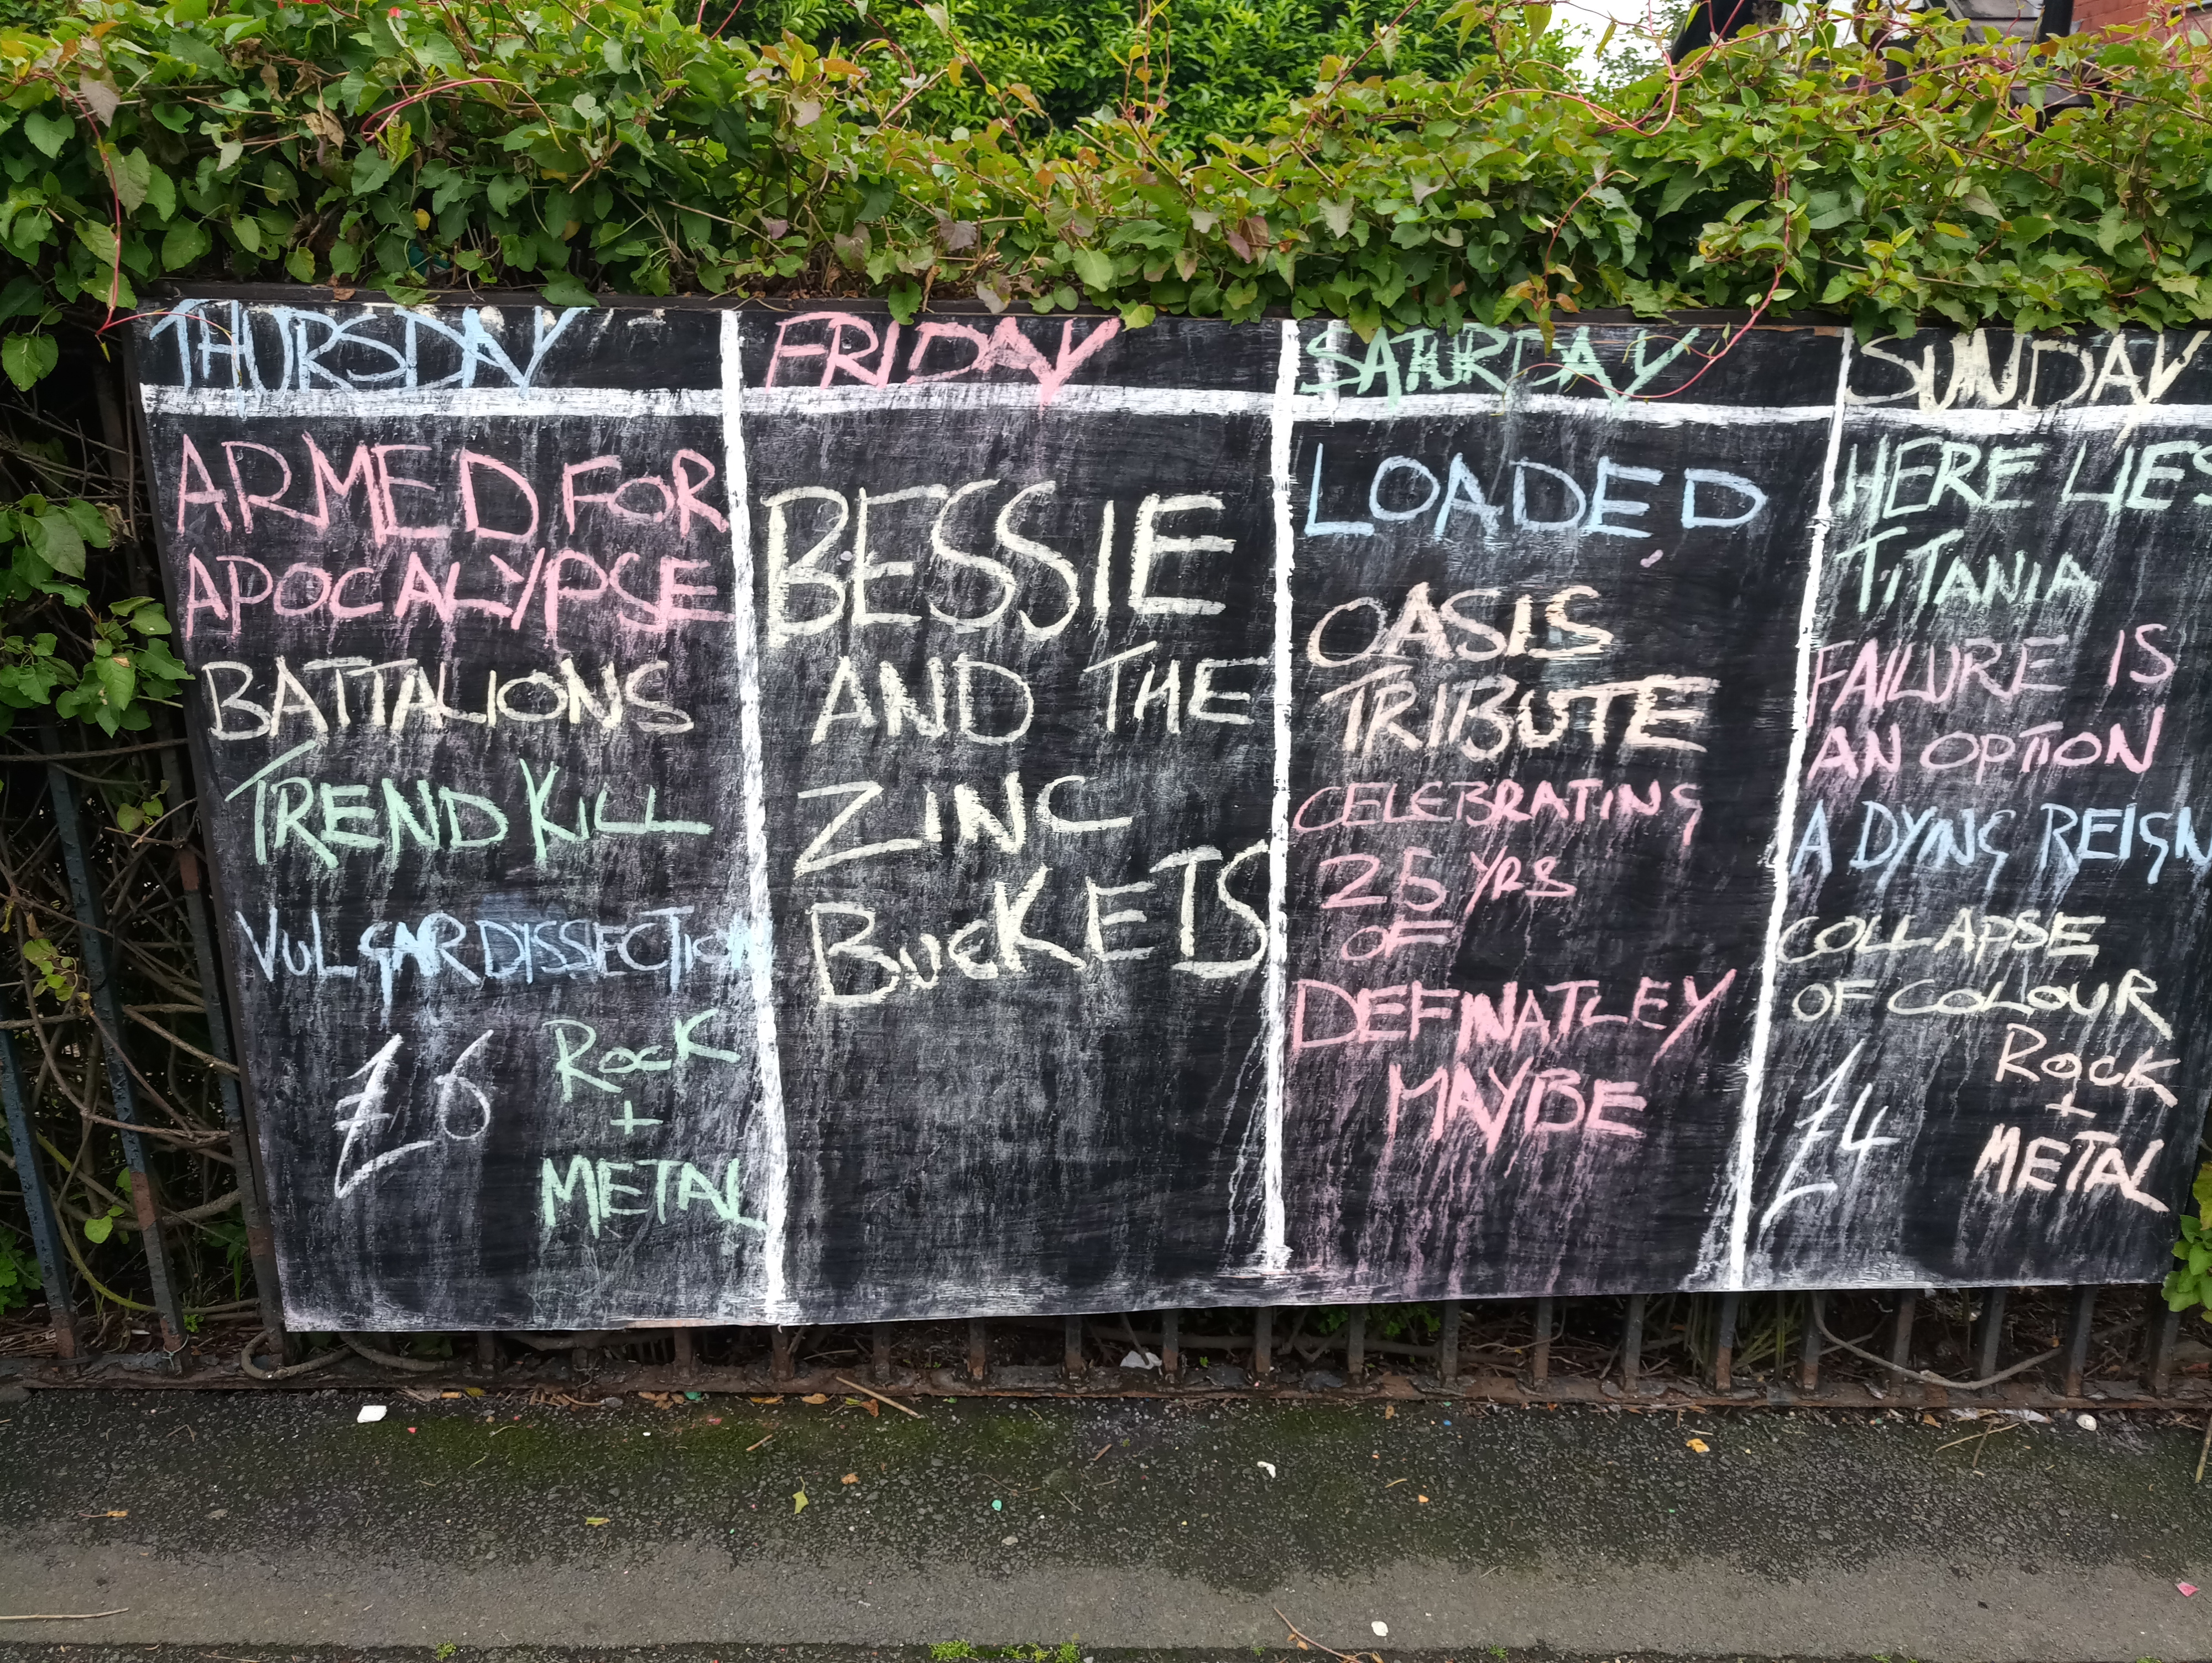 THURSDAY
ARMED FOR
APOCALYPSE
BATTALIONS
TREND KILL
VULGAR DISSECTION
£6
ROCK
+
METAL
FRIDAY
BESSIE
AND THE
ZINC
BUCKETS
SATURDAY
LOADED
OASIS
TRIBUTE
CELEBRATING
25 YRS
OF
DEFINATLEY
MAYBE
SUNDAY
HERE LIES
TITANIA
FAILURE IS
AN OPTION
A DYING REIGN
COLLAPSE
OF COLOUR
£4
ROCK
+
METAL